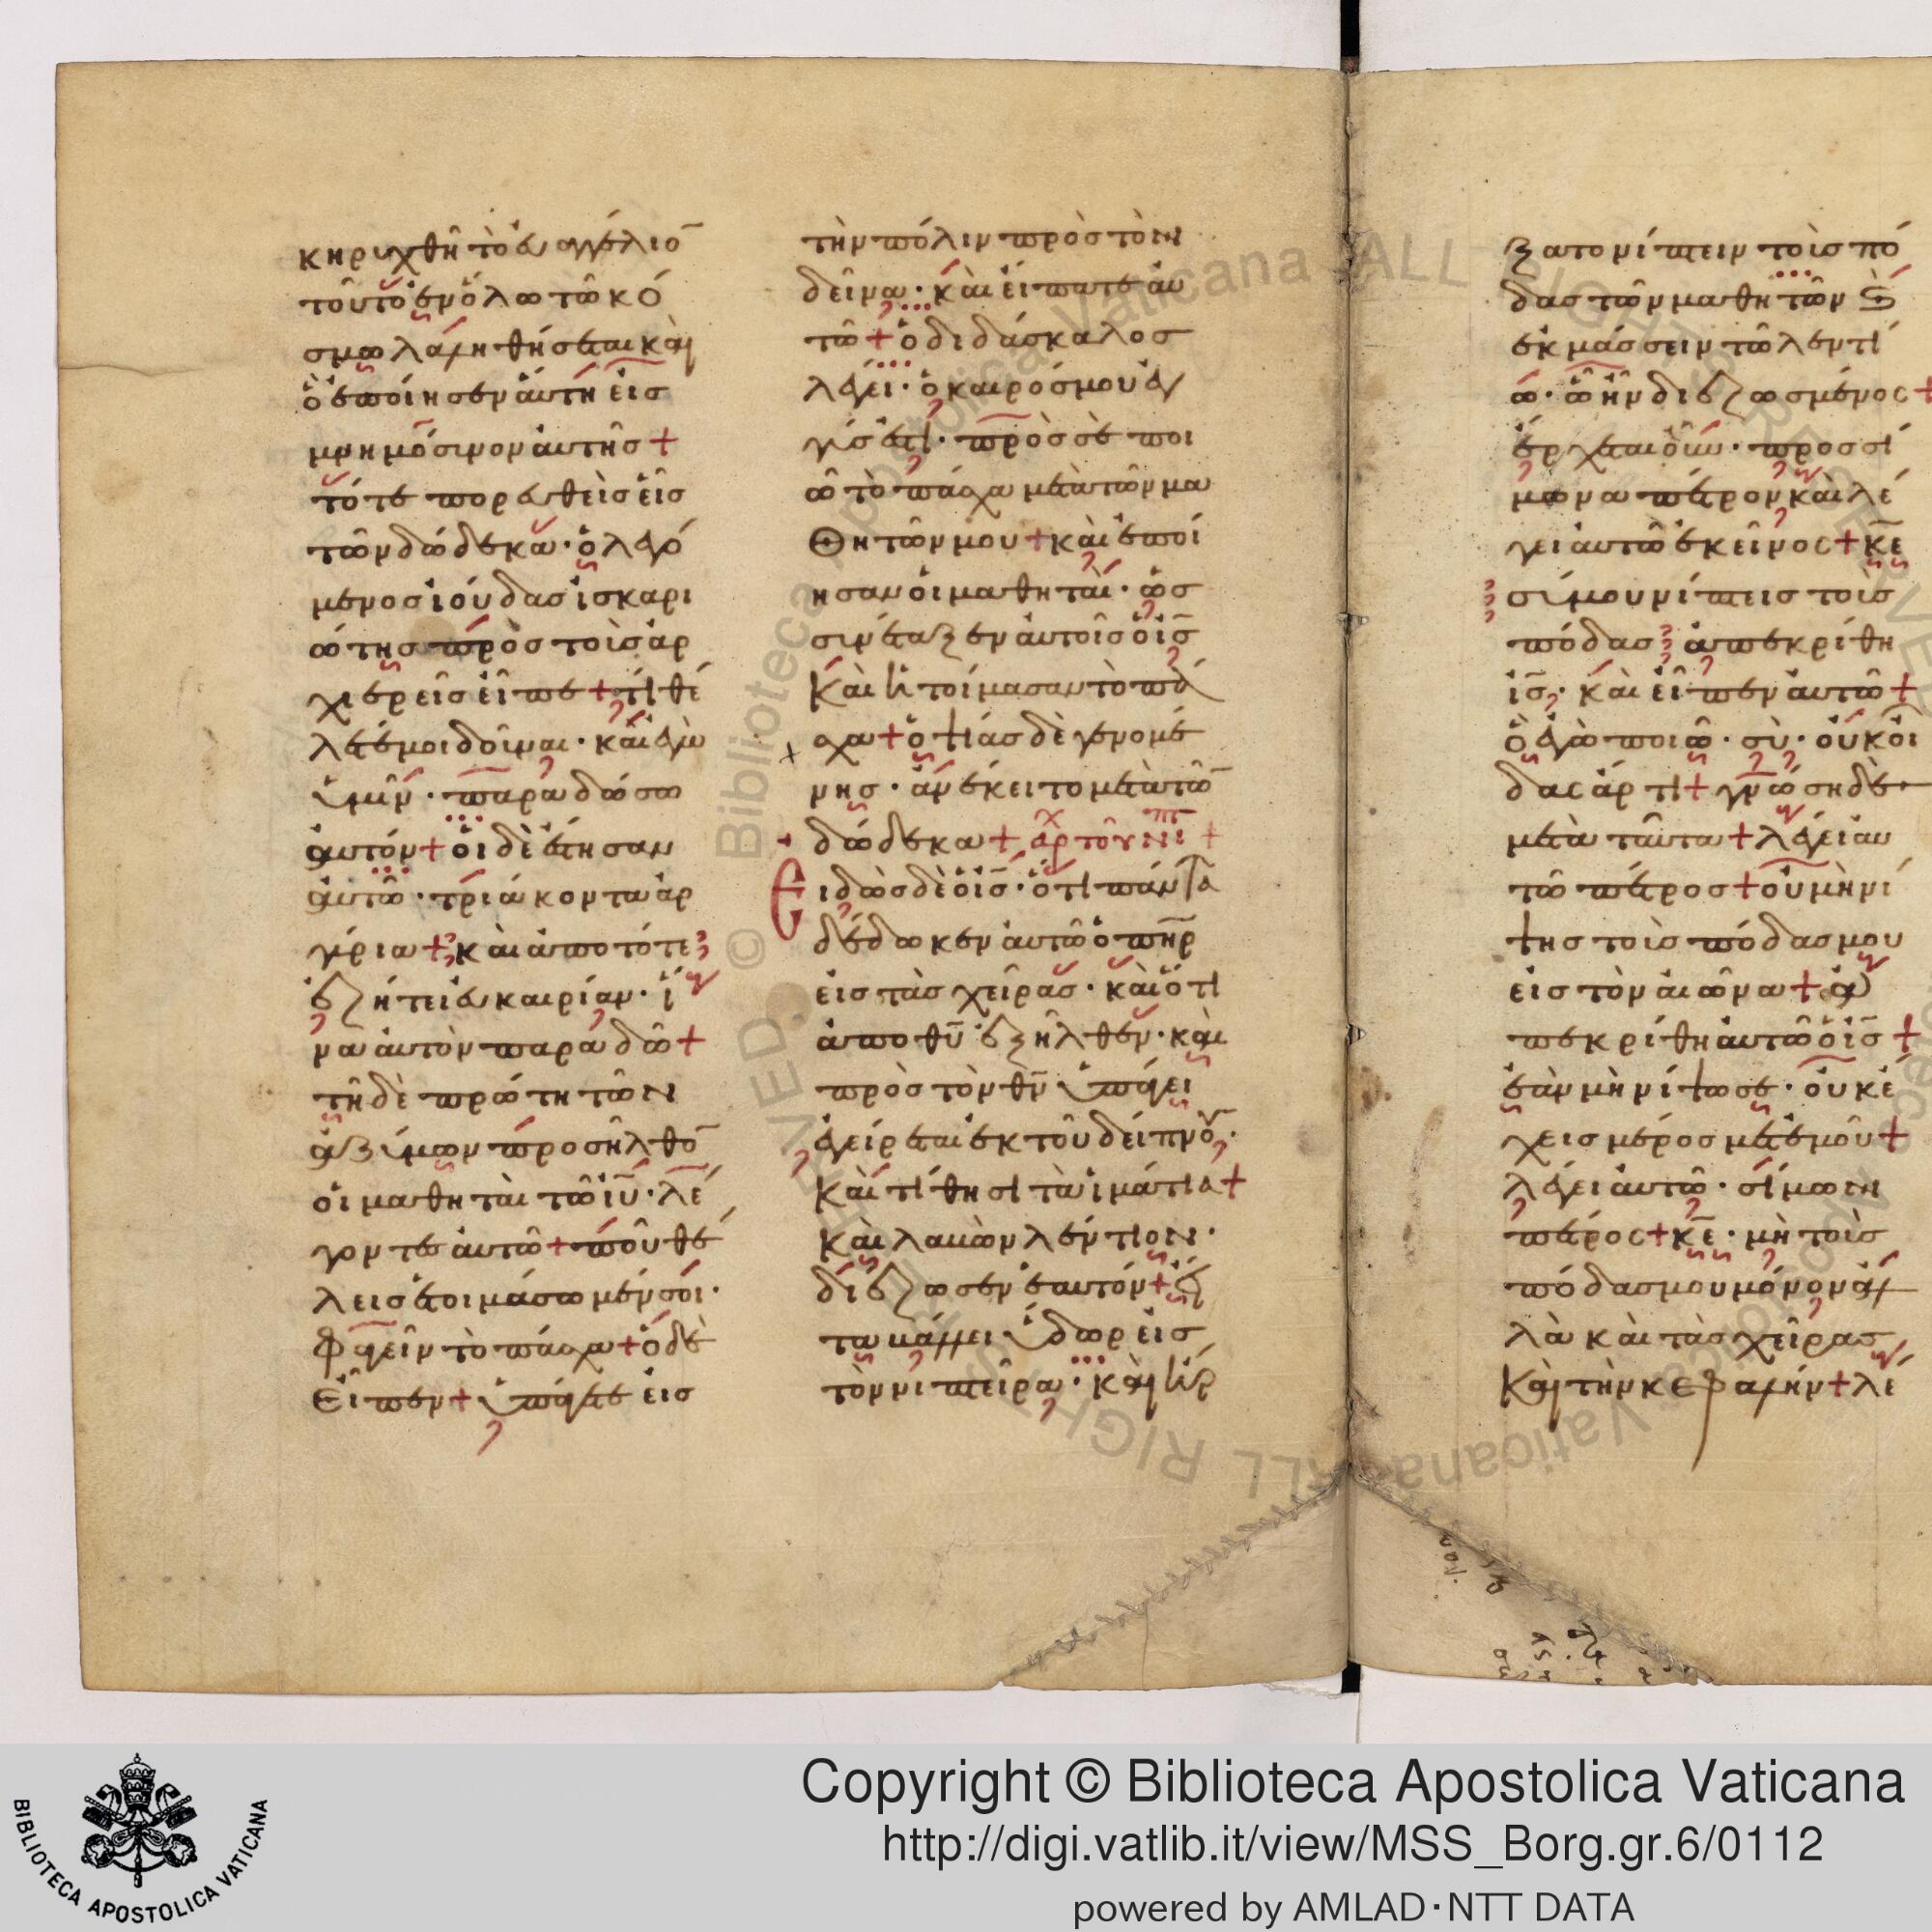 κηρυχθῆ τὸ ἐυαγγέλιο̄
τοῦτο ἐν ὅλω τῶ κό
σμω λαληθήσεται καὶ
ὃ ἐποίησεν ἀυτὴ ἐις
μνημόσυνον ἀυτῆς +
τότε πορευθεὶς εἷς
τῶν δώδεκα · ὁ λεγό
μενος ἰούδας ἰσκαρι
ώτης πρὸς τοὺς ἀρ
χιερεῖς εἶπε + τί θέ
λετέ μοι δοῦναι · κἀγὼ
ὑμῖν · παραδώσω
ἀυτόν + ὁι δὲ ἔστησαν
ἀυτῶ · τριάκοντα ἀρ
γύρια + καὶ ἀπὸ τότε
ἐζήτει ἐυκαιρίαν · ἵ
να ἀυτὸν παραδῶ +
τῆ δὲ πρώτη τῶν
ἀζύμων προσῆλθο̄
ὁι μαθηταὶ τῶ ἰῦ · λέ
γοντες ἀυτῶ + ποῦ θέ
λεις ἑτοιμάσωμέν σοι ·
φαγεῖν τὸ πάσχα + ὁ δὲ
εἶπεν + ὑπάγετε ἐις
τὴν πόλιν πρὸς τὸν
δεῖνα · καὶ εἴπατε ἀυ
τῶ + ὁ διδάσκαλος
λέγει · ὁ καιρός μου ἐγ
γύς ἐστι · πρὸς σὲ ποι
ῶ τὸ πάσχα μετὰ τῶν μα
θητῶν μου + καὶ ἐποί
ησαν ὁι μαθηταὶ · ὡς
συνέταξεν ἀυτοῖς ὁ ἰς̄
καὶ ἡτοίμασαν τὸ πά
σχα + ὀψίας δὲ γενομέ
νης · ἀνέκειτο μετὰ τῶ̄
δώδεκα + ἀρχ τοῦ νιπτ +
Ειδὼς δὲ ὁ ἰς̄ · ὅτι πάντα
δέδωκεν ἀυτῶ ὁ πη̄ρ
εἰς τὰς χεῖρας · καὶ ὅτι
ἀπὸ θῡ ἐξῆλθεν · καὶ
πρὸς τὸν θν̄ ὑπάγει
ἐγείρεται ἐκ τοῦ δείπνου ·
καὶ τίθησι τὰ ἱμάτια +
καὶ λαβὼν λέντιον ·
διέζωσεν ἑαυτόν + εἶ
τα βάλλει ὕδωρ εἰς
τὸν νιπτῆρα · καὶ ἤρ
ξατο νίπτειν τοὺς πό
δας τῶν μαθητῶν ϗ
ἐκμάσσειν τῶ λεντί
ω · ὧ ἦν διεζωσμένος +
ἔρχεται οὖν · πρὸς σί
μωνα πέτρον καὶ λέ
γει αὐτῶ ἐκεῖνος + κε̄
σύ μου νίπτεις τοὺς
πόδας ἀπεκρίθη
ἰς̄ · καὶ εἶπεν ἀυτῶ +
ὃ ἐγὼ ποιῶ · σὺ · οὐκ οἶ
δας ἄρτι + γνώση δὲ
μετὰ ταῦτα + λέγει ἀυ
τῶ πέτρος + οὐ μὴ νί
ψης τοὺς πόδας μου
εἰς τὸν ἀιῶνα + ἀ
πεκρίθη ἀυτῶ ὁ ἰς̄ +
ἐὰν μὴ νίψω σε · οὐκ ἔ
χεις μέρος μετ' ἐμοῦ +
λέγει ἀυτῶ · σίμων
πέτρος + κε̄ · μὴ τοὺς
πόδας μου μόνον ἀλ
λὰ καὶ τὰς χεῖρας
καὶ τὴν κεφαλήν + λέ
Copyright © Biblioteca Apostolica Vaticana
http://digi.vatlib.it/view/MSS_Borg.gr.6/0112
powered by AMLAD·NTT DATA
BIBLIOTECA APOSTOLICA VATICANA